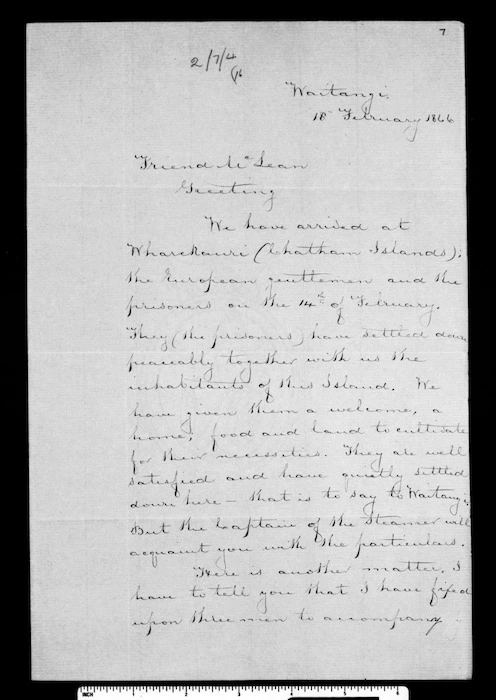 7
2/7/4
Waitangi.
18th February 1866
Friend McLean
Greeting
We have arrived at
Wharekauri (Chatham Islands);
the European gentlemen and the
prisoners on the 14th of February.
They (the prisoners) have settled down
peaceably together with us the
inhabitants of this Island. We
have given them a welcome, a
home; food and land to cultivate
for their necessities. They are well
satisfied and have quietly settled
down here – that is to say to Waitangi.
But the Captain of the Steamer will
acquaint you with the particulars.
There is another matter, I
have to tell you that I have fixed
upon three men to accompany
INCH 1 2 3 4